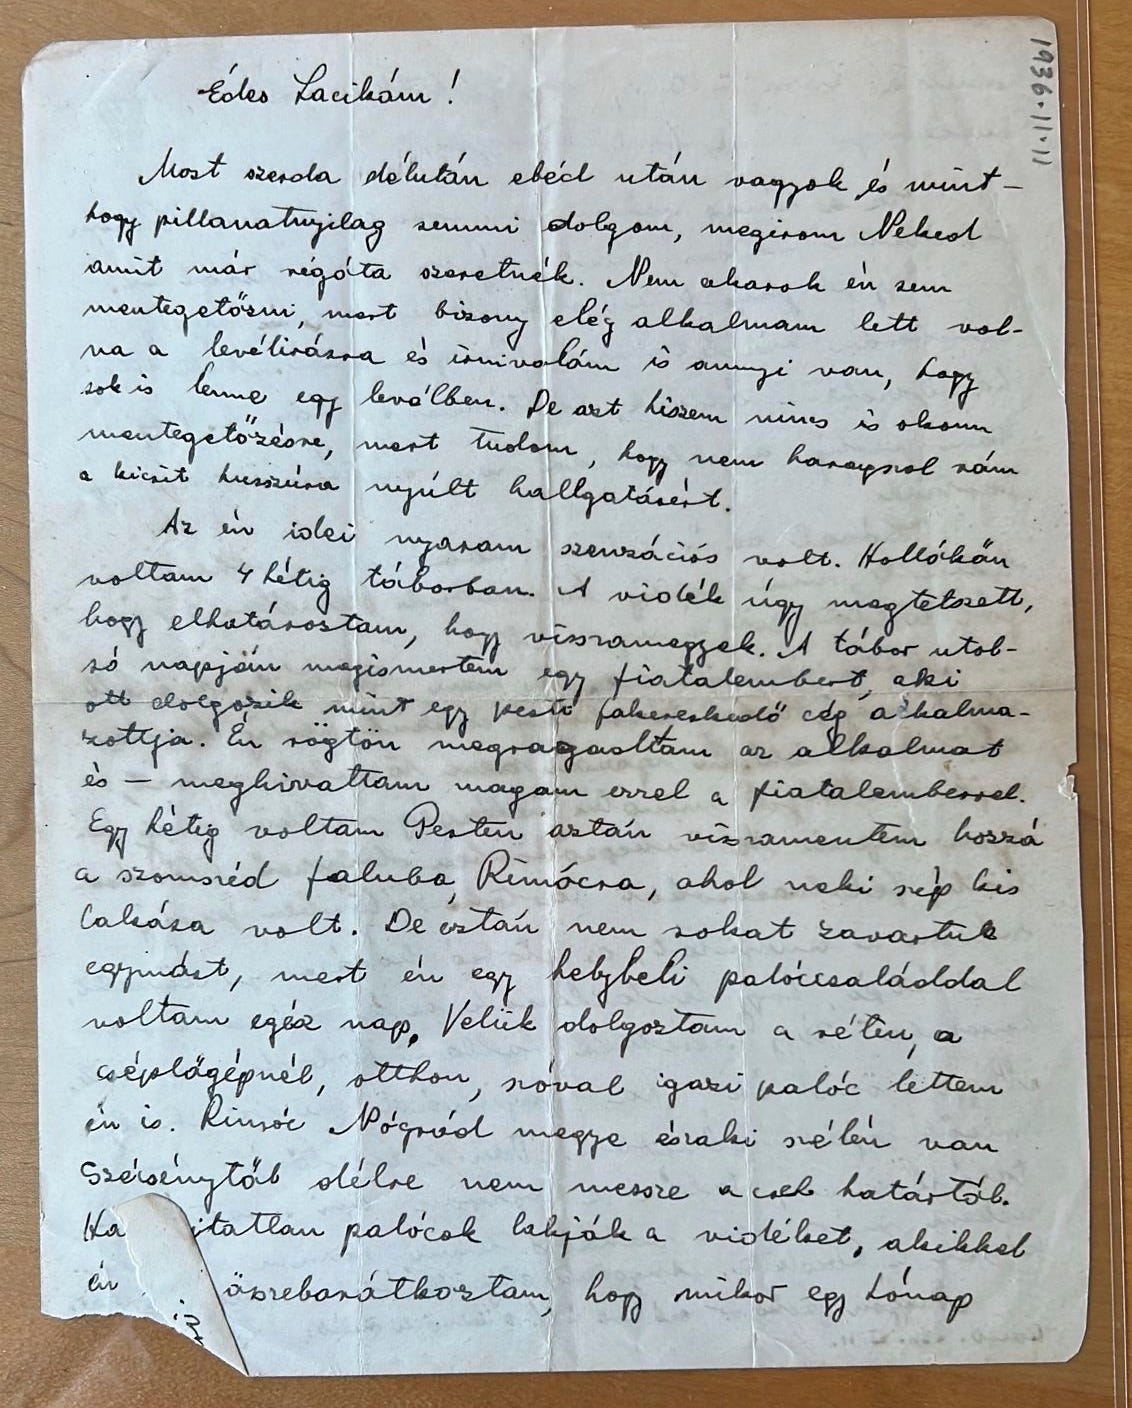 1936.11.11
Édes Lacikám!
Most szerda délután ebéd után vagyok és mint-
hogy pillanatnyilag semmi dolgom, megirom Neked
amit már régóta szeretnék. Nem akarok én sem
mentegetőzni, mert bizony elég alkalmam lett vol-
na a levélirásra és irnivalóm is annyi van, hogy
sok is lenne egy levélben. De azt hiszem nincs is okom
mentegetőzésre, mert tudom, hogy nem haragszol rám
a kicsit hosszúra nyúlt hallgatásért.
Az én idei nyaram szenzációs volt. Hollókőn
voltam 4 hétig táborban. A vidék úgy megtetszett,
hogy elhatároztam, hogy visszamegyek. A tábor utol-
só napján megismertem egy fiatalembert, aki
ott dolgozik mint egy pesti fakereskedő cég alkalma-
zottja. Én rögtön megragadtam az alkalmat
és – meghivattam magam ezzel a fiatalemberrel.
Egy hétig voltam Pesten aztán visszamentem hozzá
a szomszéd faluba, Rimócra, ahol neki szép kis
lakása volt. De aztán nem sokat zavartuk
egymást, mert én egy helybeli palóccsaláddal
voltam egész nap. Velük dolgoztam a réten, a
cséplőgépnél, otthon, szóval igazi palóc lettem
én is. Rimóc Nógrád megye északi szélén van
Szécsénytől délre nem messze a cseh határtól.
Ha itatlan palócok lakják a vidéket, akikkel
én összebarátkoztam, hogy mikor egy hónap